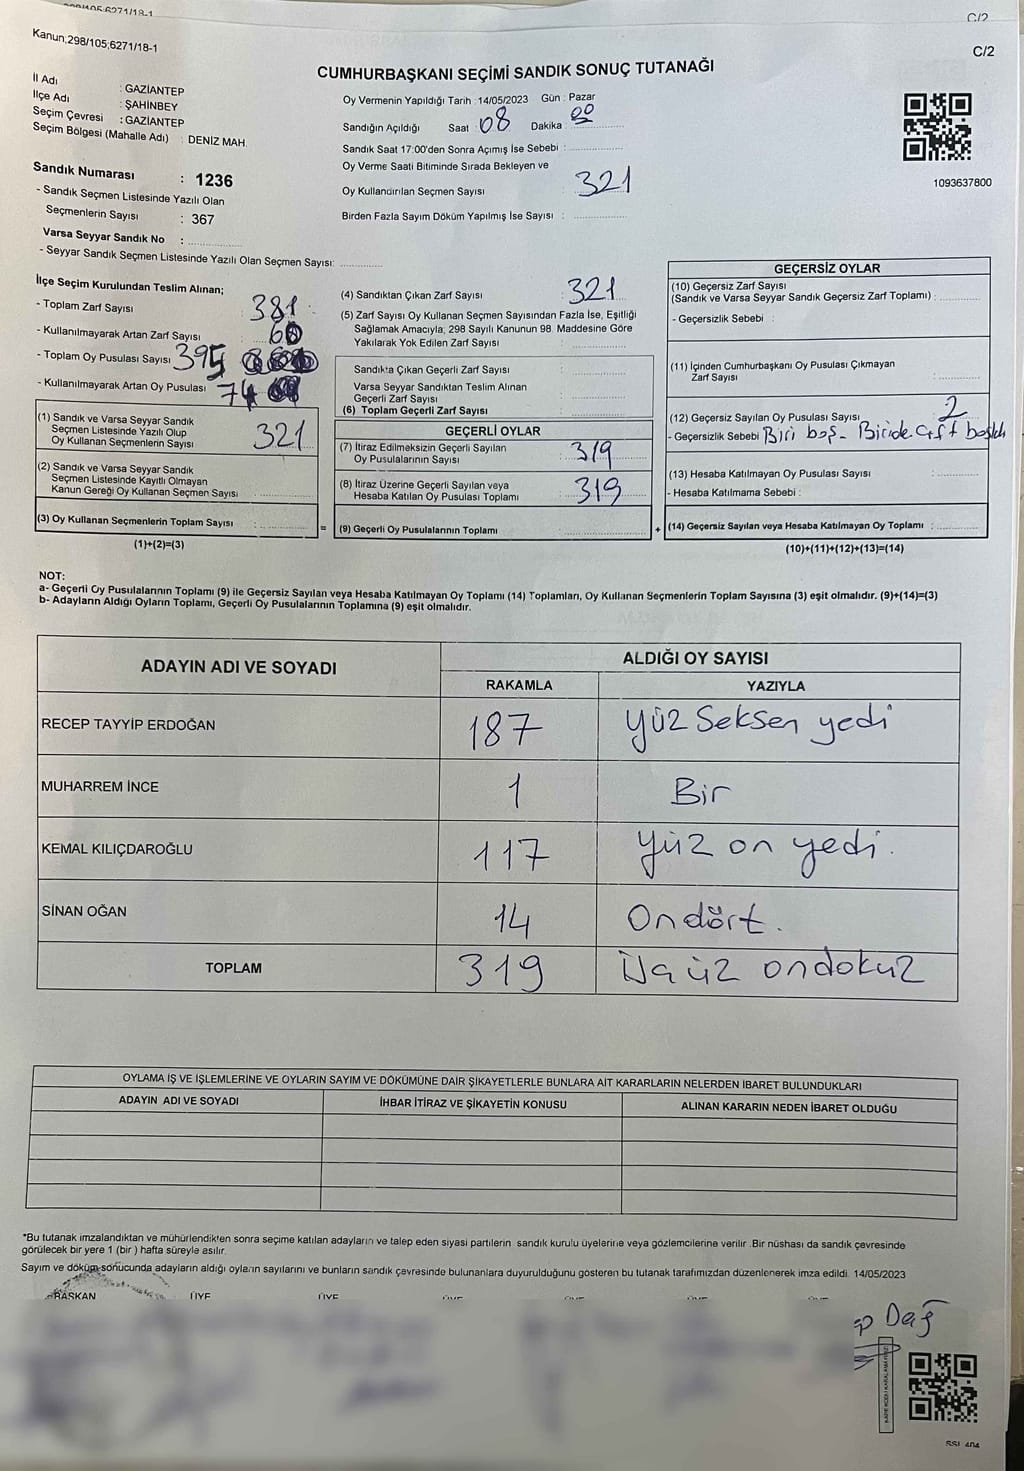 C/2
Kanun;298/105;6271/18-1
C/2
CUMHURBAŞKANI SEÇİMİ SANDIK SONUÇ TUTANAĞI
İl Adı : GAZİANTEP
İlçe Adı : ŞAHİNBEY
Seçim Çevresi : GAZİANTEP
Seçim Bölgesi (Mahalle Adı) : DENİZ MAH.
Sandık Numarası : 1236
- Sandık Seçmen Listesinde Yazılı Olan
Seçmenlerin Sayısı : 367
Varsa Seyyar Sandık No :
- Seyyar Sandık Seçmen Listesinde Yazılı Olan Seçmen Sayısı:
Oy Vermenin Yapıldığı Tarih : 14/05/2023 Gün : Pazar
Sandığın Açıldığı Saat 08 Dakika 00
Sandık Saat 17:00'den Sonra Açımış İse Sebebi :
Oy Verme Saati Bitiminde Sırada Bekleyen ve
Oy Kullandırılan Seçmen Sayısı : 321
Birden Fazla Sayım Döküm Yapılmış İse Sayısı :
1093637800
İlçe Seçim Kurulundan Teslim Alınan;
- Toplam Zarf Sayısı 381
- Kullanılmayarak Artan Zarf Sayısı 60
- Toplam Oy Pusulası Sayısı 395
- Kullanılmayarak Artan Oy Pusulası 74
(1) Sandık ve Varsa Seyyar Sandık
Seçmen Listesinde Yazılı Olup
Oy Kullanan Seçmenlerin Sayısı 321
(2) Sandık ve Varsa Seyyar Sandık
Seçmen Listesinde Kayıtlı Olmayan
Kanun Gereği Oy Kullanan Seçmen Sayısı :
(3) Oy Kullanan Seçmenlerin Toplam Sayısı :
(1)+(2)=(3)
(4) Sandıktan Çıkan Zarf Sayısı : 321
(5) Zarf Sayısı Oy Kullanan Seçmen Sayısından Fazla İse, Eşitliği
Sağlamak Amacıyla, 298 Sayılı Kanunun 98. Maddesine Göre
Yakılarak Yok Edilen Zarf Sayısı :
Sandıkta Çıkan Geçerli Zarf Sayısı :
Varsa Seyyar Sandıktan Teslim Alınan
Geçerli Zarf Sayısı :
(6) Toplam Geçerli Zarf Sayısı :
GEÇERLİ OYLAR
(7) İtiraz Edilmeksizin Geçerli Sayılan
Oy Pusulalarının Sayısı : 319
(8) İtiraz Üzerine Geçerli Sayılan veya
Hesaba Katılan Oy Pusulası Toplamı : 319
= (9) Geçerli Oy Pusulalarının Toplamı
GEÇERSİZ OYLAR
(10) Geçersiz Zarf Sayısı
(Sandık ve Varsa Seyyar Sandık Geçersiz Zarf Toplamı) :
- Geçersizlik Sebebi :
(11) İçinden Cumhurbaşkanı Oy Pusulası Çıkmayan
Zarf Sayısı :
(12) Geçersiz Sayılan Oy Pusulası Sayısı : 2
- Geçersizlik Sebebi Biri boş - Biride çift basılı
(13) Hesaba Katılmayan Oy Pusulası Sayısı :
- Hesaba Katılmama Sebebi :
+ (14) Geçersiz Sayılan veya Hesaba Katılmayan Oy Toplamı :
(10)+(11)+(12)+(13)=(14)
NOT:
a- Geçerli Oy Pusulalarının Toplamı (9) ile Geçersiz Sayılan veya Hesaba Katılmayan Oy Toplamı (14) Toplamları, Oy Kullanan Seçmenlerin Toplam Sayısına (3) eşit olmalıdır. (9)+(14)=(3)
b- Adayların Aldığı Oyların Toplamı, Geçerli Oy Pusulalarının Toplamına (9) eşit olmalıdır.
ADAYIN ADI VE SOYADI
ALDIĞI OY SAYISI
RAKAMLA YAZIYLA
RECEP TAYYİP ERDOĞAN 187 Yüz Seksen yedi
MUHARREM İNCE 1 Bir
KEMAL KILIÇDAROĞLU 117 Yüz on yedi.
SİNAN OĞAN 14 Ondört.
TOPLAM 319 ondokuz
OYLAMA İŞ VE İŞLEMLERİNE VE OYLARIN SAYIM VE DÖKÜMÜNE DAİR ŞİKAYETLERLE BUNLARA AİT KARARLARIN NELERDEN İBARET BULUNDUKLARI
ADAYIN ADI VE SOYADI İHBAR İTİRAZ VE ŞİKAYETİN KONUSU ALINAN KARARIN NEDEN İBARET OLDUĞU
*Bu tutanak imzalandıktan ve mühürlendikten sonra seçime katılan adayların ve talep eden siyasi partilerin sandık kurulu üyelerine veya gözlemcilerine verilir .Bir nüshası da sandık çevresinde
görülecek bir yere 1 (bir ) hafta süreyle asılır.
Sayım ve döküm sonucunda adayların aldığı oyların sayılarını ve bunların sandık çevresinde bulunanlara duyurulduğunu gösteren bu tutanak tarafımızdan düzenlenerek imza edildi. 14/05/2023
BAŞKAN ÜYE ÜYE
Dağ